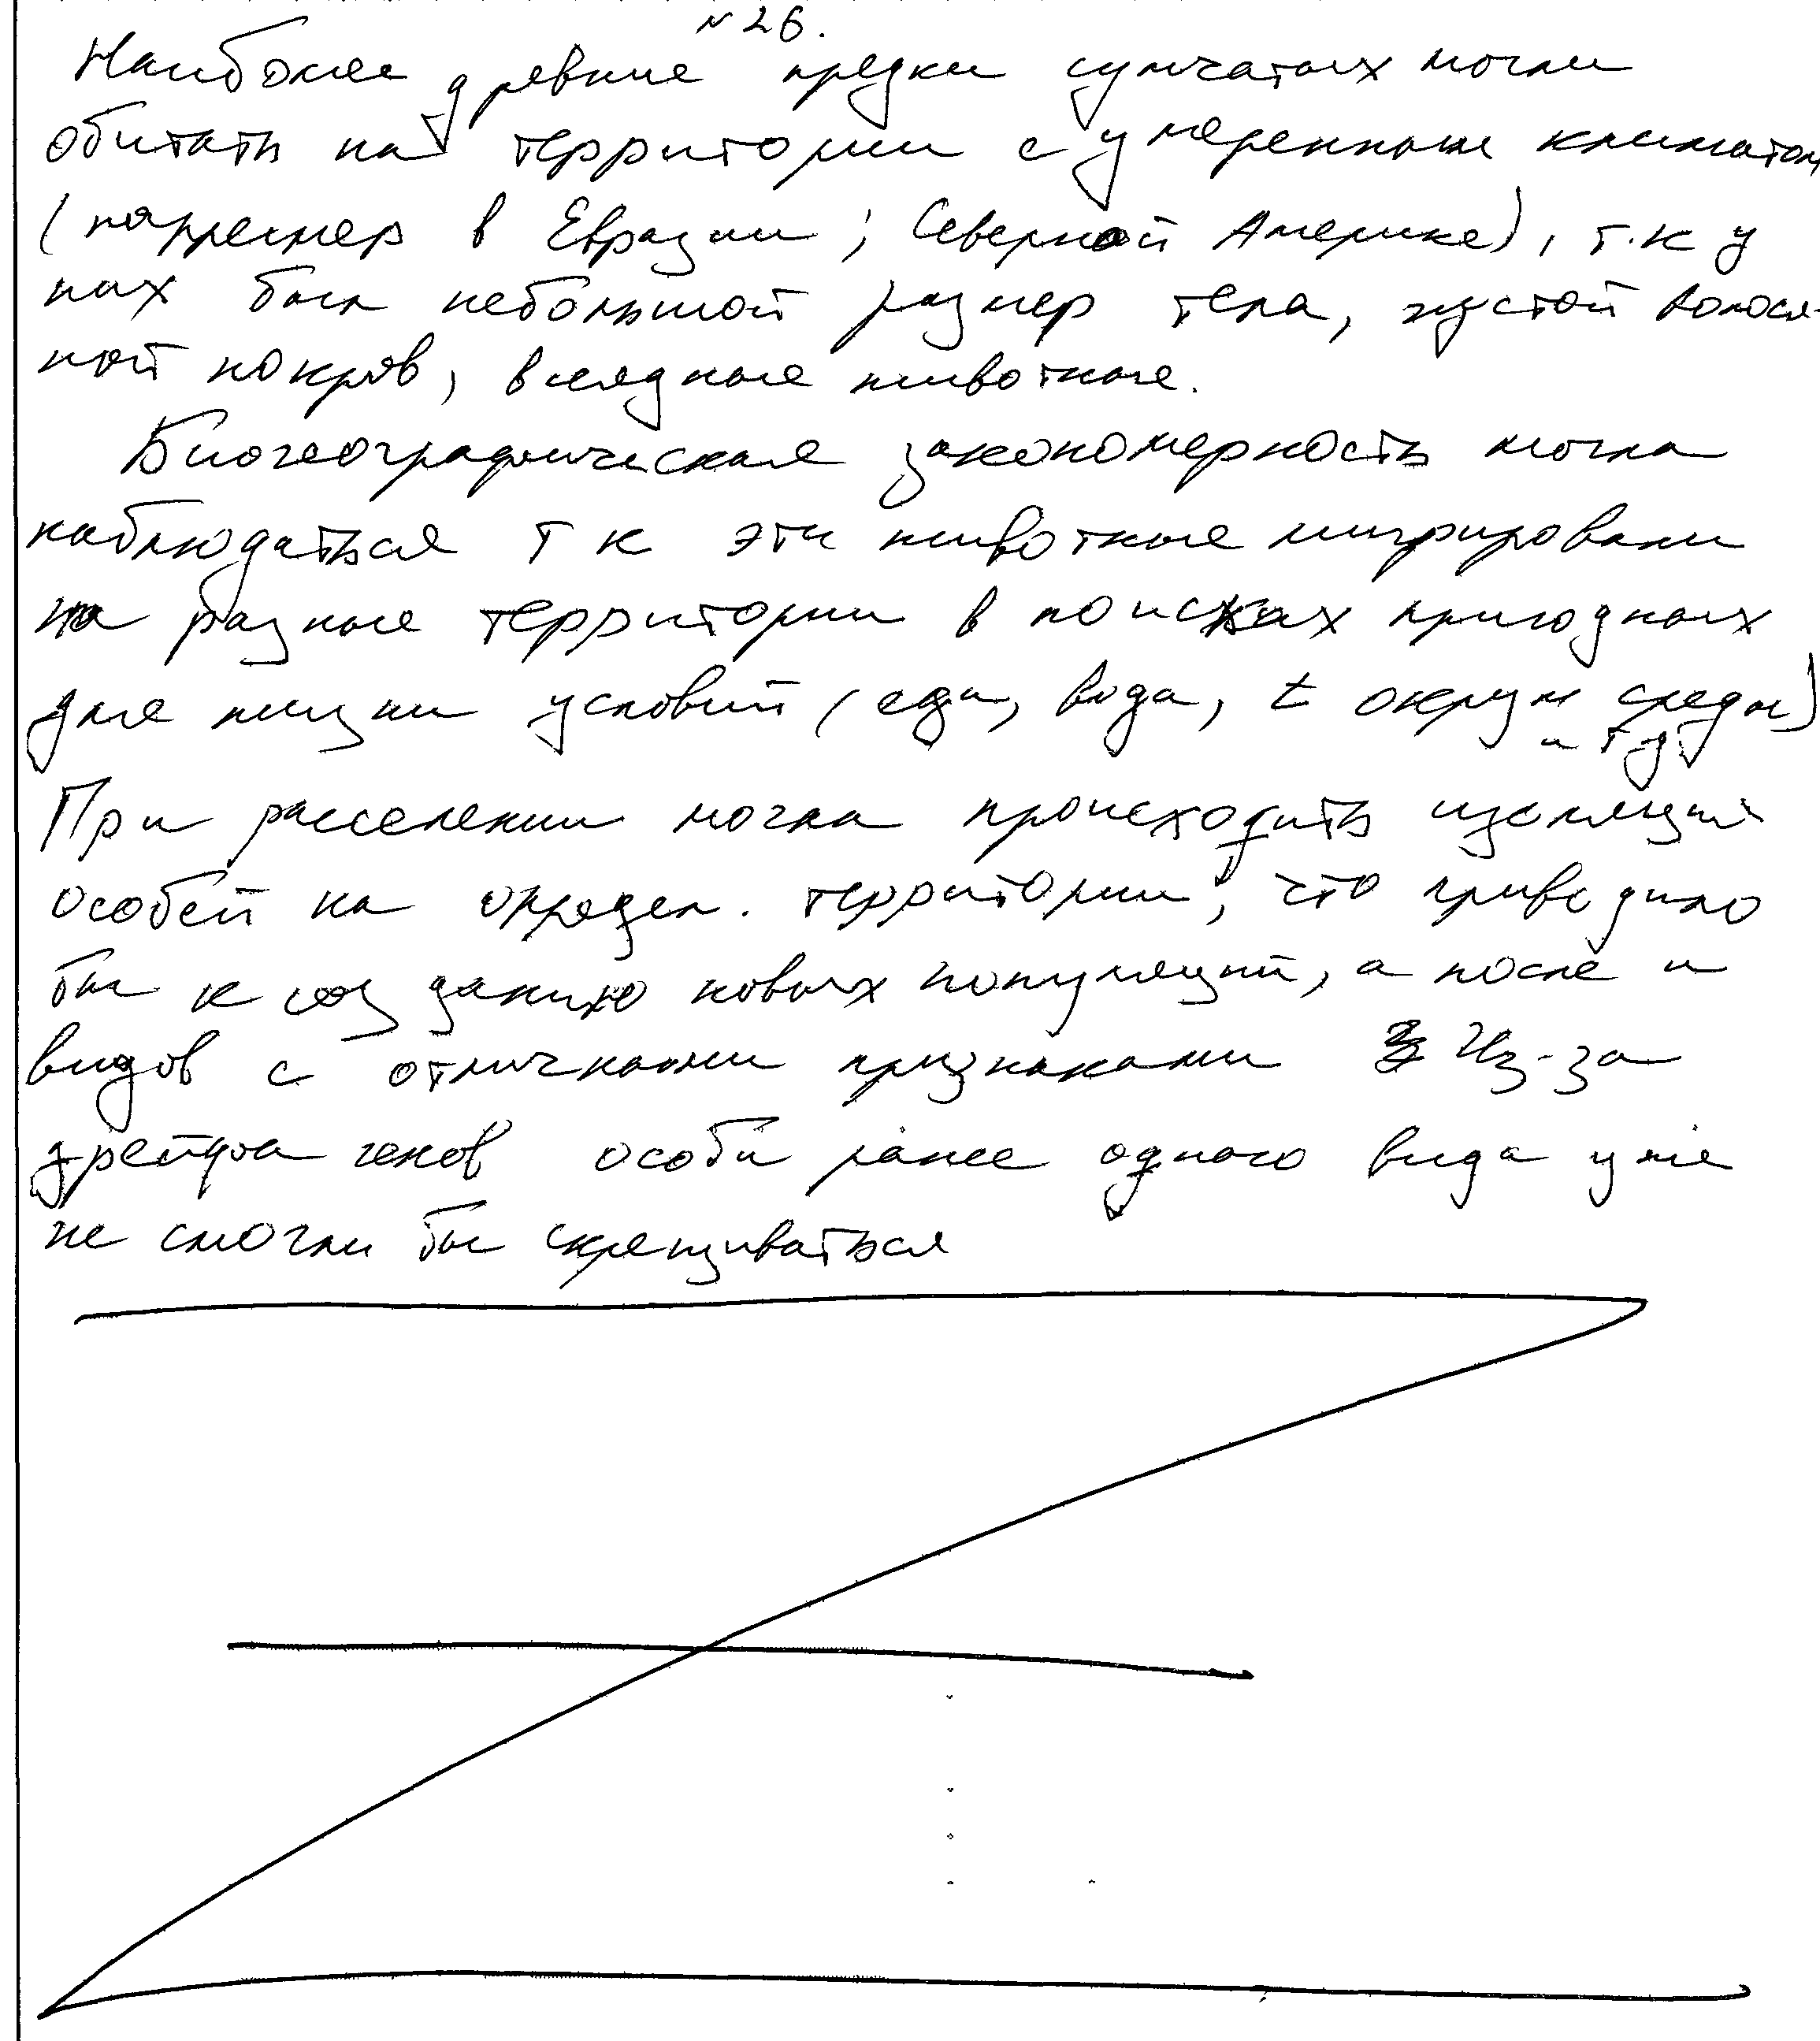 №26.
Наиболее древние предки сумчатых могли
обитать на территории с умеренным климатом
(например в Евразии; Северной Америке), т.к у
них был небольшой размер тела, густой волося-
ной покров, всеядные животные.
Биогеографическая закономерность могла
наблюдаться т к эти животные мигрировали
на разные территории в поисках пригодных
для жизни условий (еда, вода, t окруж среды)
и т д
При расселении могла происходить изоляция
особей на определ. территории, что приводило
бы к созданию новых популяций, а после и
видов с отличными признаками Из-за
дрейфа генов особи ранее одного вида уже
не смогли бы скрещиваться